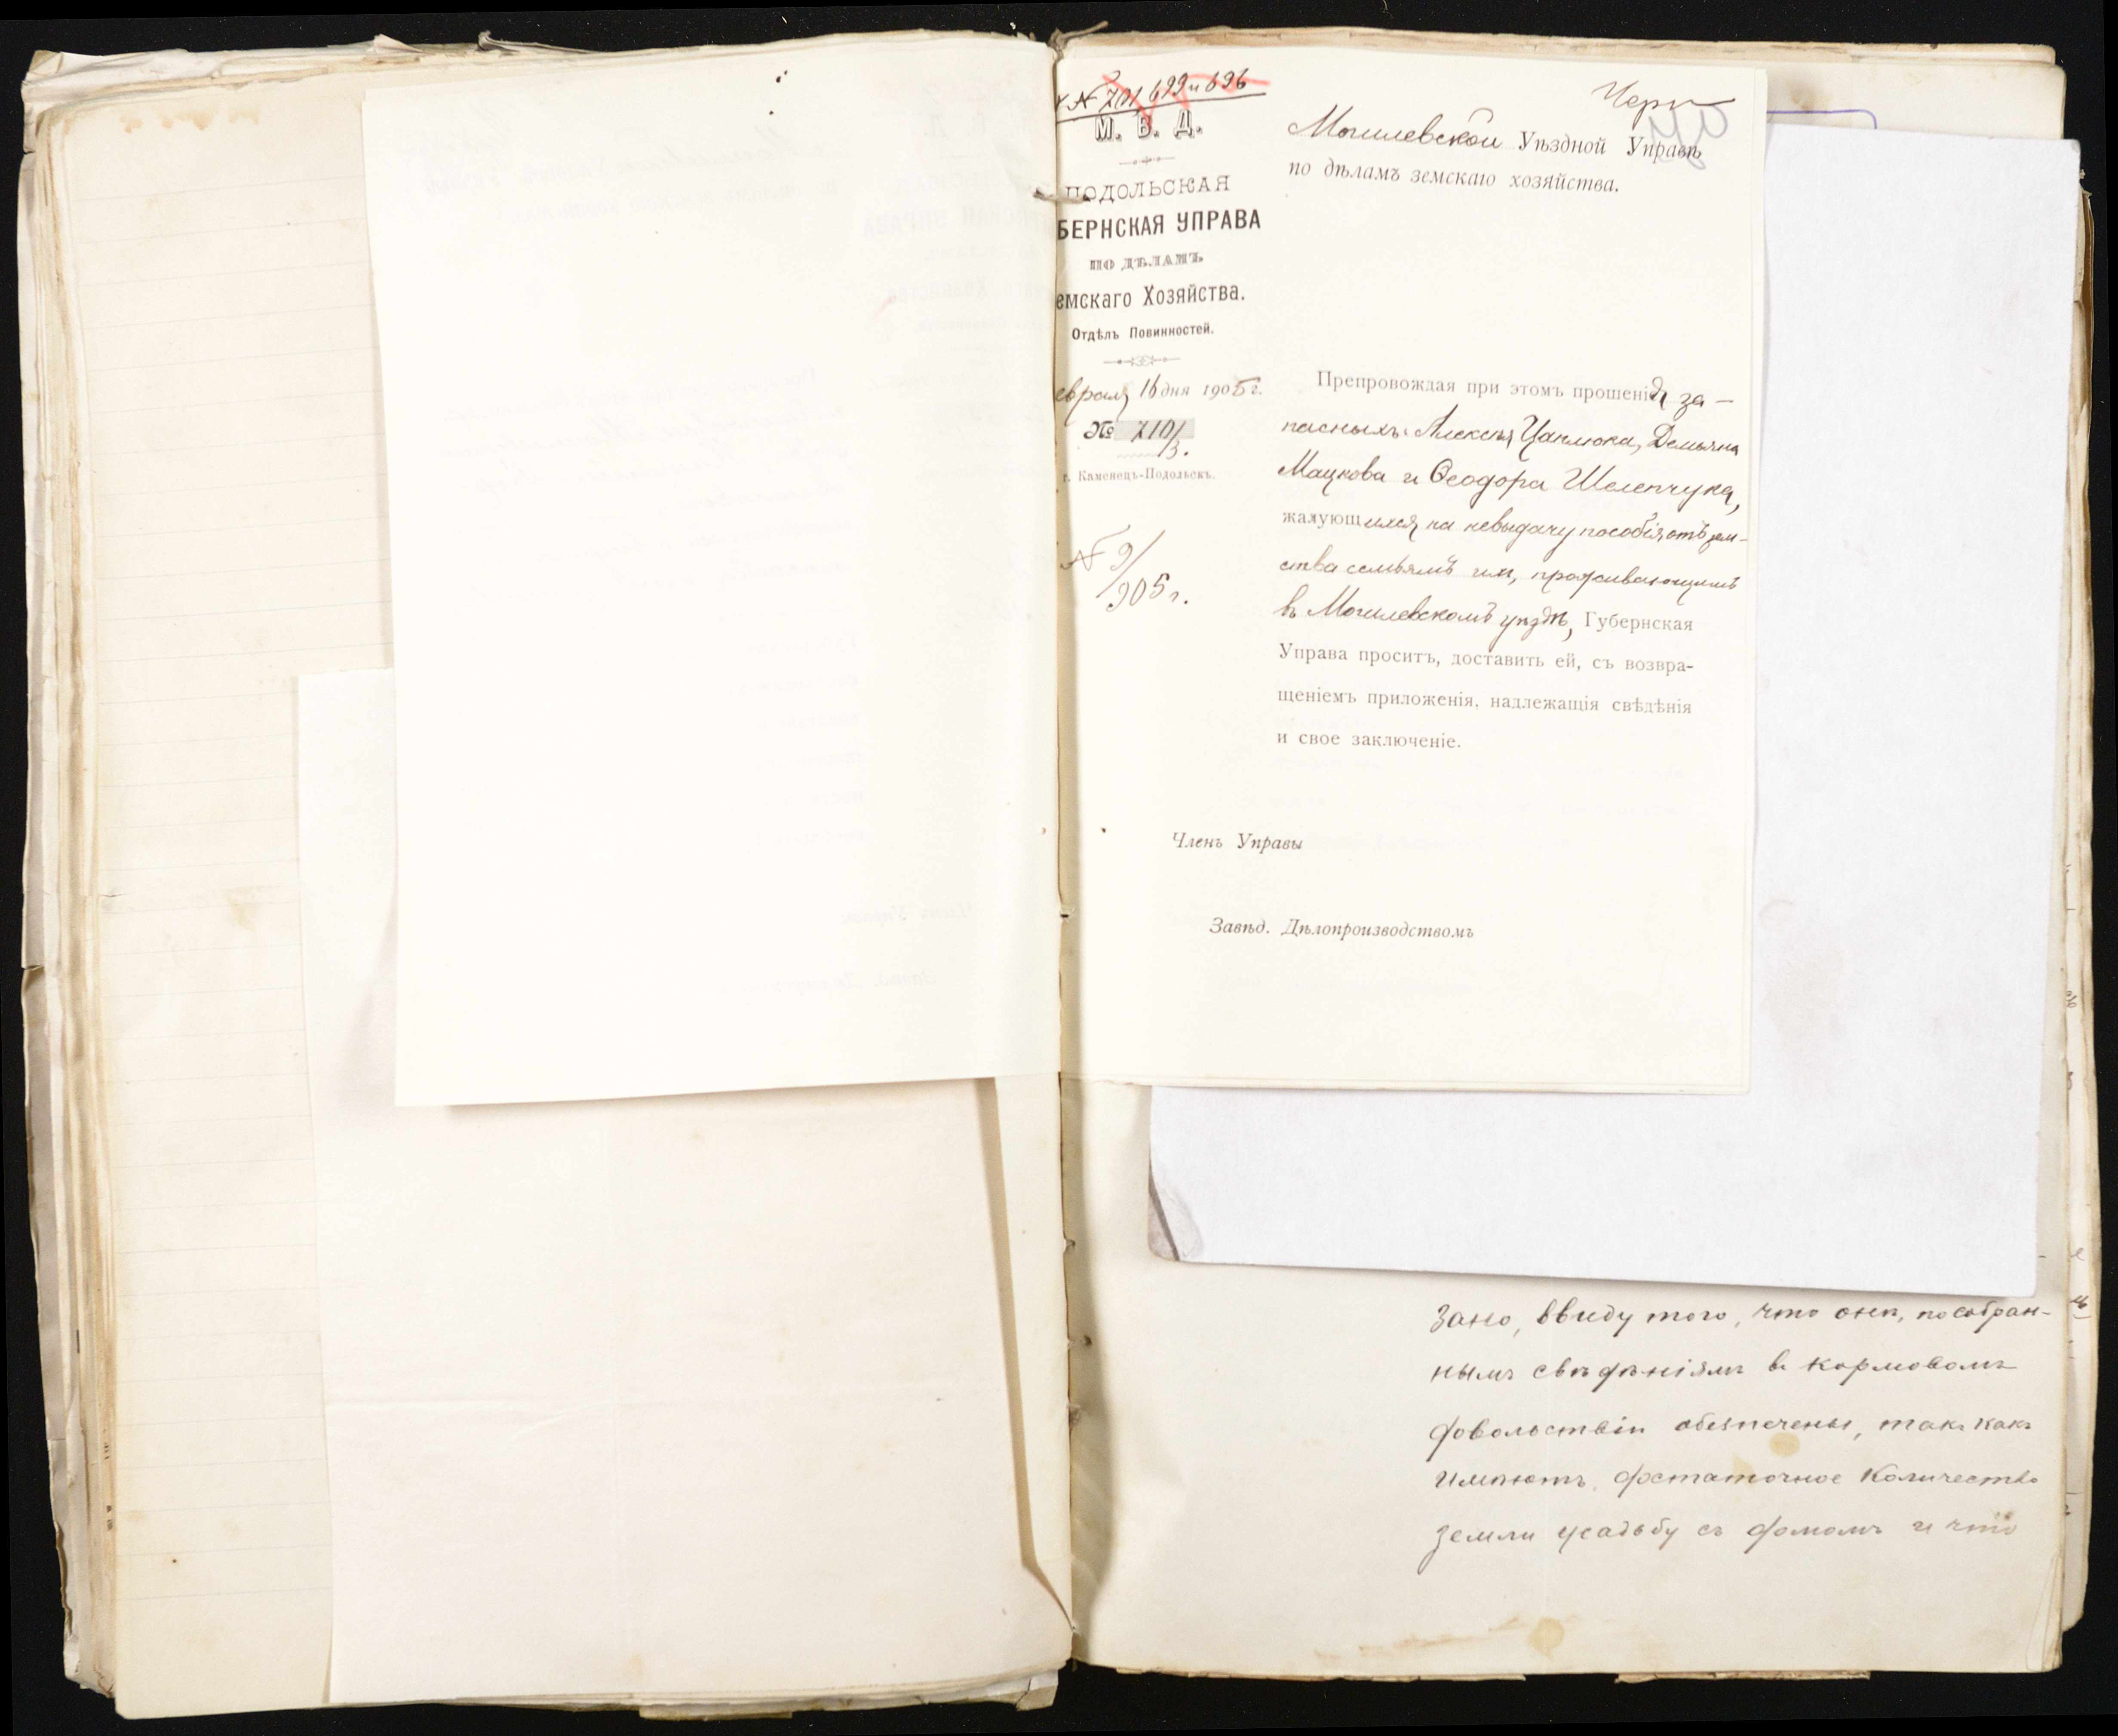 № 701, 699 и 696
М. В. Д.
ПОДОЛЬСКАЯ
БЕРНСКАЯ УПРАВА
ПО ДѢЛАМЪ
емскаго Хозяйства.
Отдѣлъ Повинностей.
евраля 16 дня 1905 г.
№ 710/3.
г. Каменецъ-Подольскъ.
№ 9/905 г.
Могилевской Уѣздной Управѣ
по дѣламъ земскаго хозяйства.
Препровождая при этомъ прошенія за-
пасныхъ: Алексѣя Цаплюка, Демьяна
Мацкова и Ѳеодора Шелепчука,
жалующихся на невыдачу пособія отъ зем-
ства семьямъ ихъ, проживающимъ
въ Могилевскомъ уѣздѣ, Губернская
Управа проситъ, доставить ей, съ возвра-
щеніемъ приложенія, надлежащія свѣдѣнія
и свое заключеніе.
Членъ Управы
Завѣд. Дѣлопроизводствомъ
зано, ввиду того, что они, по собран-
нымъ свѣдѣніямъ въ кормовомъ
довольствіи обезпечены, такъ какъ
имѣютъ достаточное количество
земли усадьбу съ домомъ и что